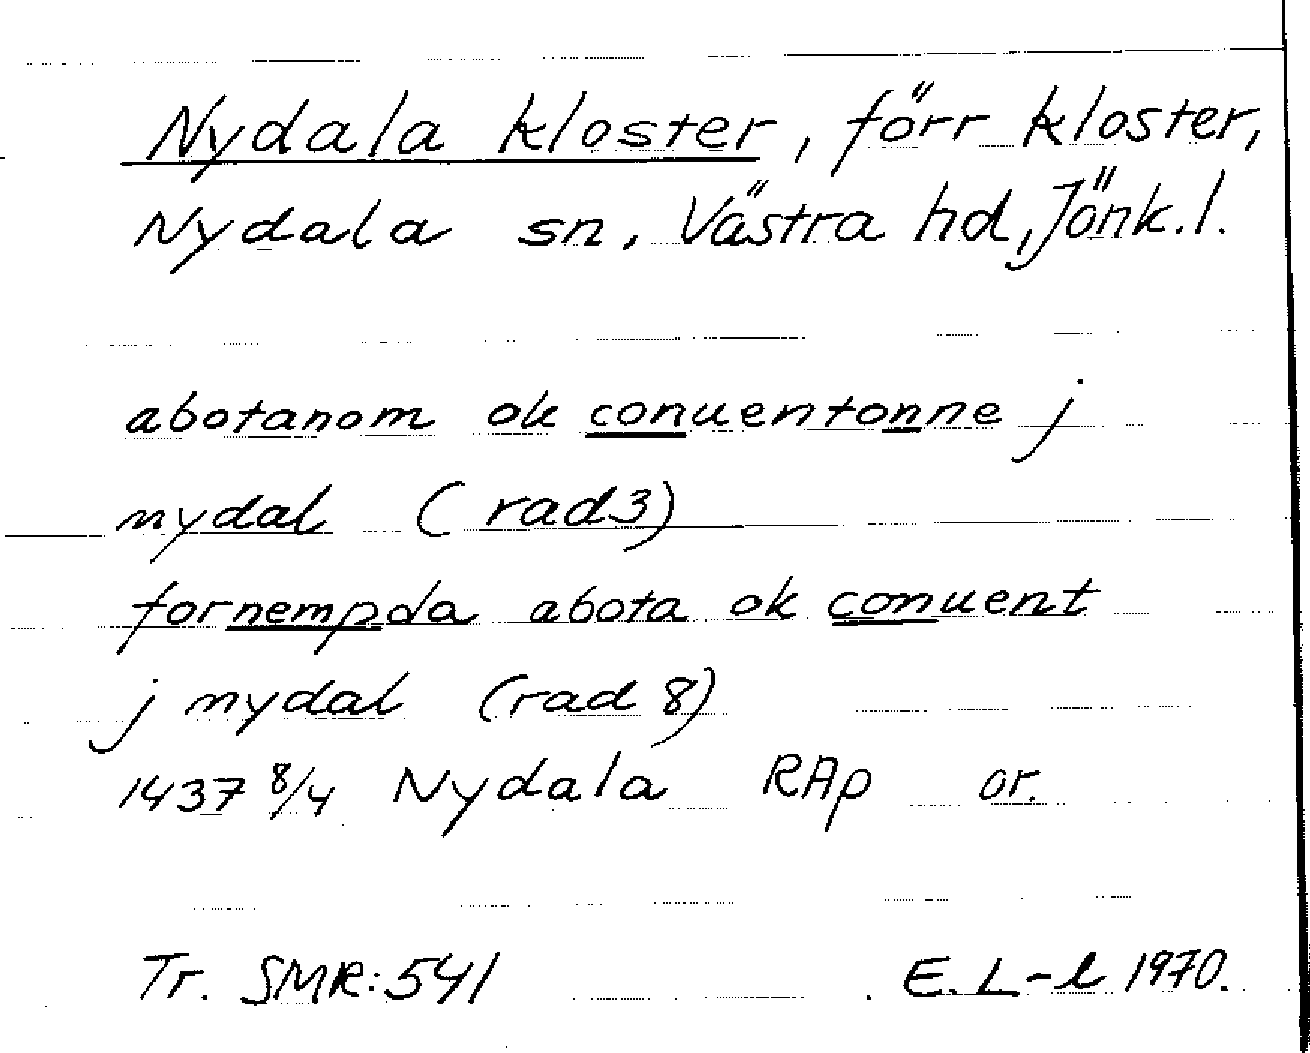 Nydala kloster, förr kloster,
Nydala sn, Västra hd, Jönk.l.
abotanom ok conuentonne j
nydal (rad 3)
fornempda abota ok conuent
j nydal (rad 8)
1437 8/4 Nydala RAp or.
Tr. SMR:541 E. L-l 1970.